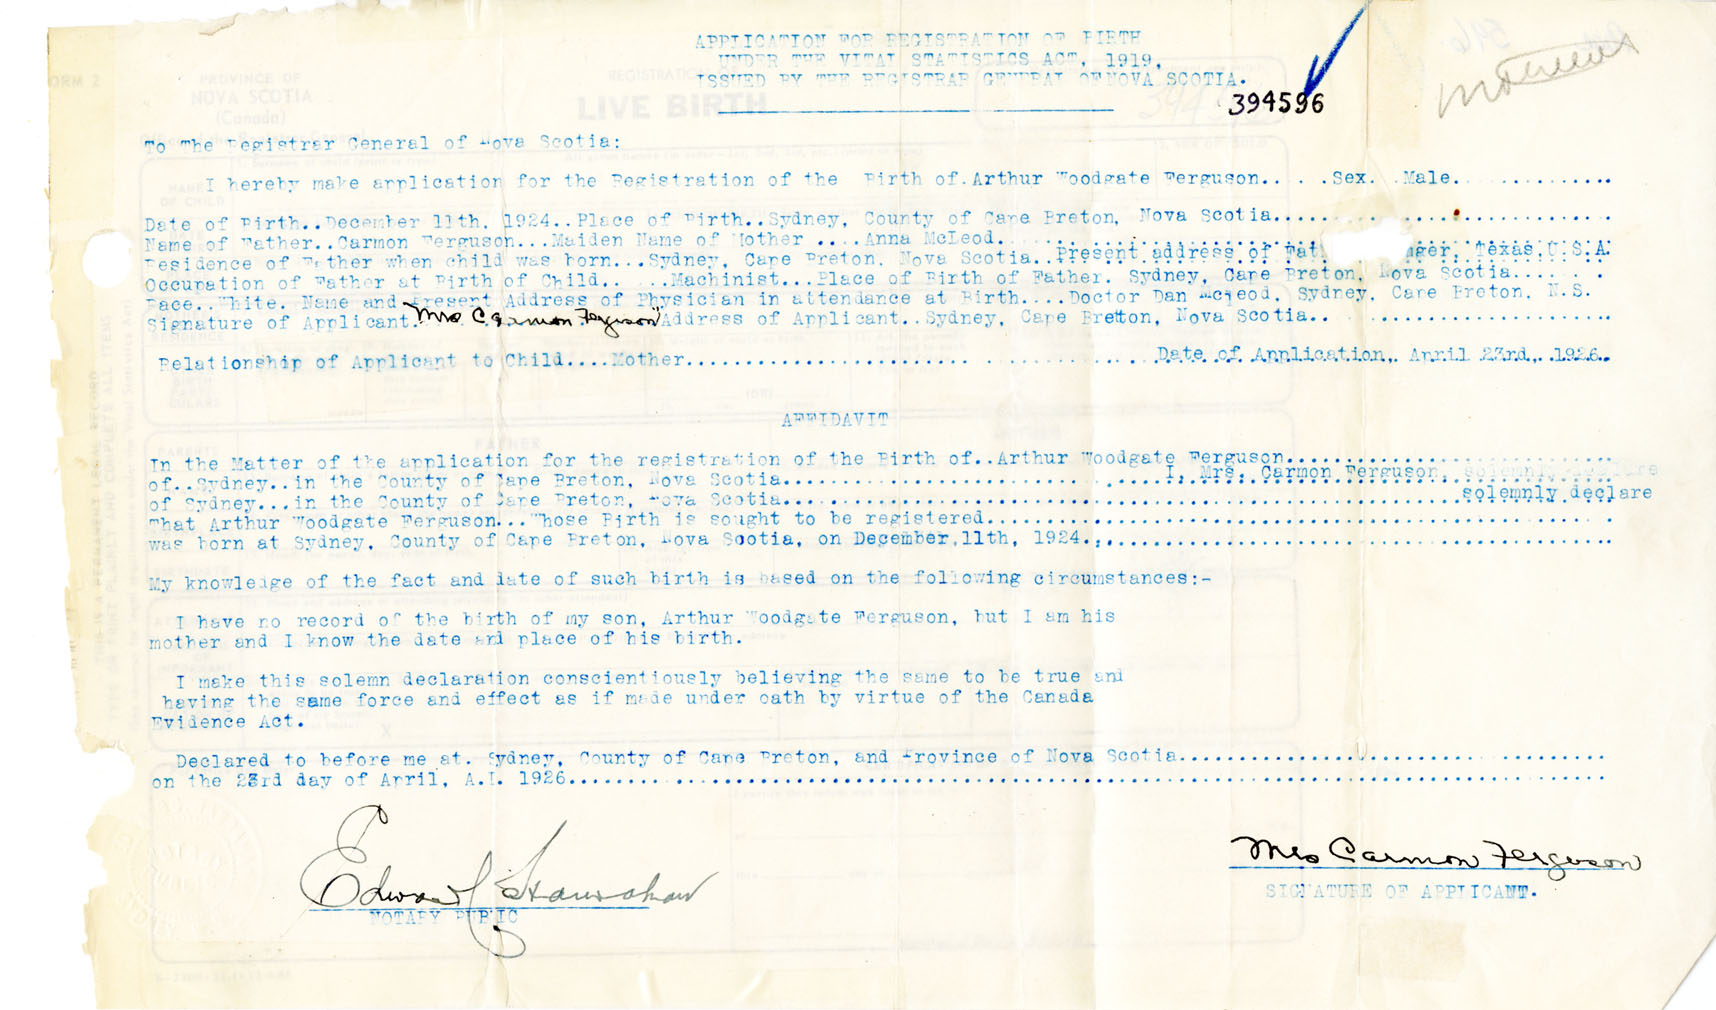 APPLICATION FOR REGISTRATION OF BIRTH
UNDER THE VITAL STATISTICS ACT, 1919,
ISSUED BY THE REGISTRAR GENERAL OF NOVA SCOTIA.
394596
To The Registrar General of Nova Scotia:
I hereby make application for the Registration of the Birth of. Arthur Woodgate Ferguson.. . .Sex. .Male..............
Date of Birth..December 11th, 1924..Place of Birth..Sydney, County of Cape Breton, Nova Scotia..............................
Name of Father..Carmon Ferguson...Maiden Name of Mother ....Anna McLeod..............................
Residence of Father when child was born...Sydney, Cape Breton, Nova Scotia..Present address of Texas,U.S.A.
Occupation of Father at Birth of Child.. ...Machinist...Place of Birth of Father. Sydney, Cape Breton, Nova Scotia...... .
Race..White. Name and Present Address of Physician in attendance at Birth....Doctor Dan McLeod, Sydney, Cape Breton, N.S.
Signature of Applicant. Mrs Carmon Ferguson Address of Applicant..Sydney, Cape Bretton, Nova Scotia.. ........................
Relationship of Applicant to Child....Mother..............................Date of Application,. April 23rd,.1926..
AFFIDAVIT
In the Matter of the application for the registration of the Birth of..Arthur Woodgate Ferguson..............................
of..Sydney..in the County of Cape Breton, Nova Scotia..............................I, Mrs. Carmon Ferguson, solemnly declare
of Sydney...in the County of Cape Breton, Nova Scotia..............................solemnly declare
That Arthur Woodgate Ferguson...Whose Birth is sought to be registered..............................
was born at Sydney, County of Cape Breton, Nova Scotia, on December,11th, 1924..............................
My knowledge of the fact and date of such birth is based on the following circumstances:-
I have no record of the birth of my son, Arthur Woodgate Ferguson, but I am his
mother and I know the date and place of his birth.
I make this solemn declaration conscientiously believing the same to be true and
having the same force and effect as if made under oath by virtue of the Canada
Evidence Act.
Declared to before me at. Sydney, County of Cape Breton, and Province of Nova Scotia..............................
on the 23rd day of April, A.D. 1926..............................
Mrs Carmon Ferguson
SIGNATURE OF APPLICANT.
Edward
NOTARY PUBLIC